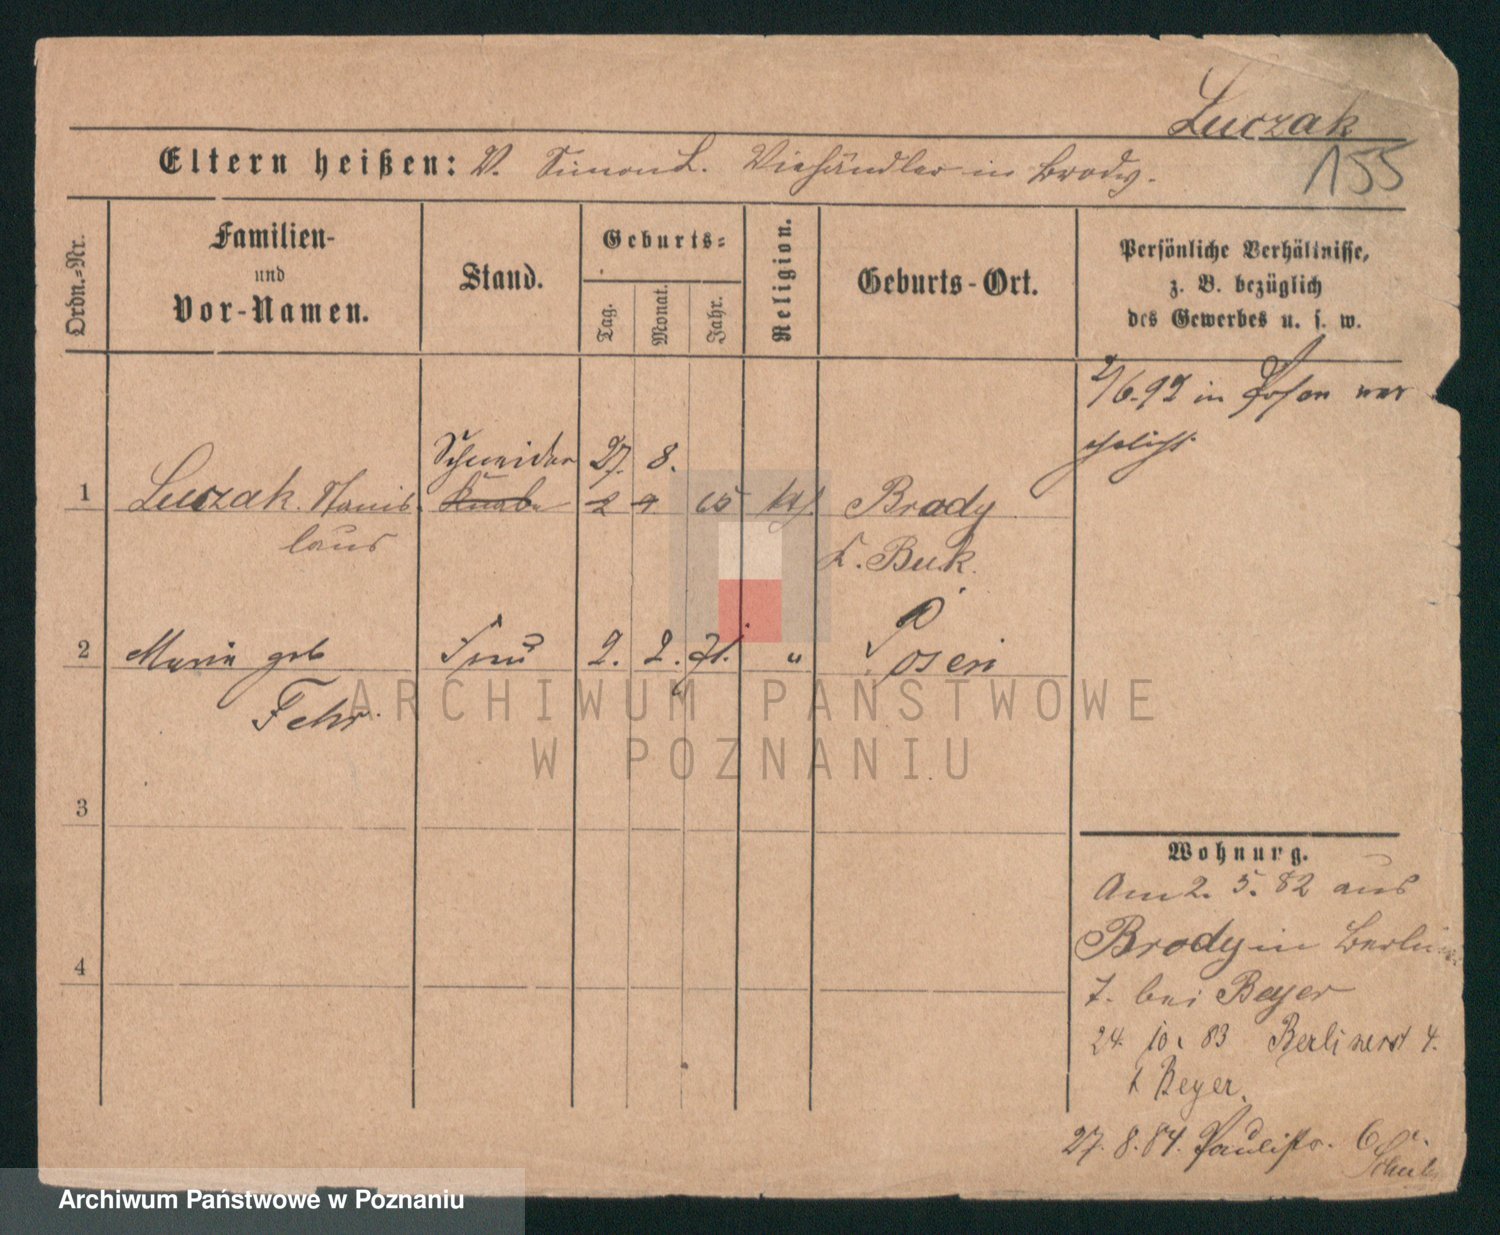 Luczak
155
Eltern heißen: V. Simon L. Viehändler in Brody.
Ordn.=Nr.
Familien-
und
Vor-Namen.
Stand.
Geburts=
Tag.
Monat.
Jahr.
Religion.
Geburts-Ort.
Persönliche Verhältnisse,
z. B. bezüglich
des Gewerbes u. s. w.
2/6.92 in Posen ver
ehelicht
Schneider 27. 8.
1 Luczak. Stanis Knabe 2 9 65 kth. Brody
laus
K. Buk.
2 Maria geb Frau 2. 2. 71. " Posen
Fehr.
3
4
Wohnung.
Am 2. 5. 82 aus
Brody in Berliner
7. bei Beyer
24. 10. 83 Berlinerst 4.
b Beyer.
27. 8. 84. Paulistr. 6 b.
ARCHIWUM PAŃSTWOWE
W POZNANIU
Archiwum Państwowe w Poznaniu